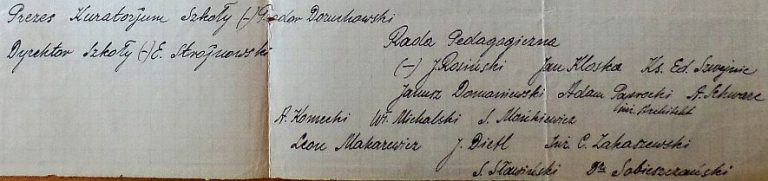 Prezes Kuratorjum Szkoły (-) Teodor Dozuchowski
Dyrektor Szkoły (-) E. Strojnowski
Rada Pedagogiczna
(-) J. Rosiński Jan Kloska Ks. Ed. Szwejnic
Janusz Domaniewski Adam Paprocki A. Schwarc
inż. Architekt
A. Komecki Wł. Michalski S. Mońkiewicz
Leon Makarewicz J. Dietl Inż. C. Zakaszewski
S. Sławiński Dr Sobieszczański